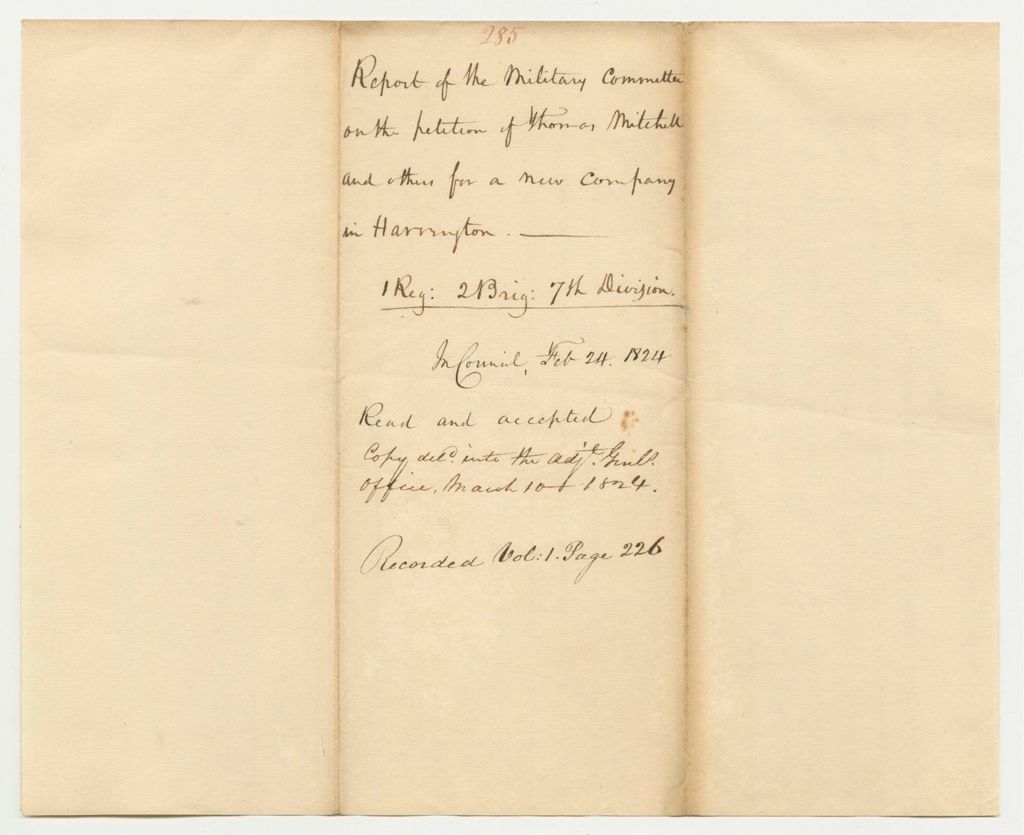 285
Report of the Military Committee
on the petition of Thomas Mitchell
and others for a new Company
in Harrington.
1 Reg: 2 Brig: 7th Division.
In Council, Feb 24. 1824
Read and accepted
Copy deld. into the Adjt. Genls.
Office, March 10th 1824.
Recorded Vol: 1. Page 226